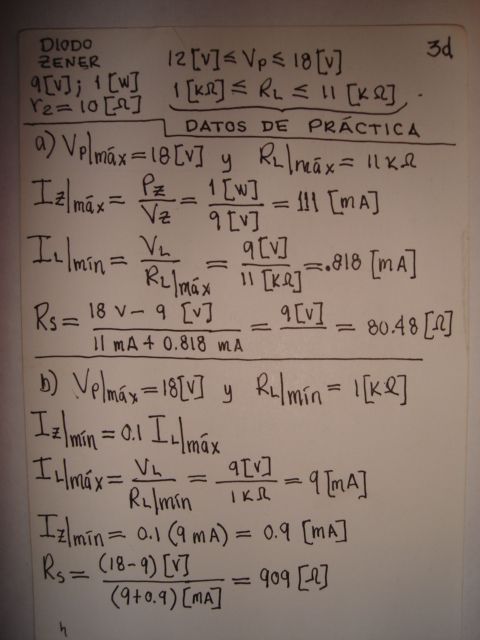 DIODO
ZENER
9[V]; 1[W]
rz=10[Ω]
12[V]≤Vp≤18[V]
1[KΩ]≤RL≤11[KΩ]
3d
DATOS DE PRÁCTICA
a) Vp|máx=18[V] y RL|máx=11KΩ
Iz|máx= Pz/Vz = 1[W]/9[V] = 111[mA]
IL|mín= VL/RL|máx = 9[V]/11[KΩ] =.818[mA]
Rs= 18 V-9 [V]/11 mA+0.818 mA = 9[V]/ = 80.48[Ω]
b) Vp|máx=18[V] y RL|mín=1[KΩ]
Iz|mín=0.1 IL|máx
IL|máx= VL/RL|mín = 9[V]/1KΩ = 9[mA]
Iz|mín=0.1(9mA)=0.9[mA]
Rs= (18-9)[V]/(9+0.9)[mA] = 909[Ω]